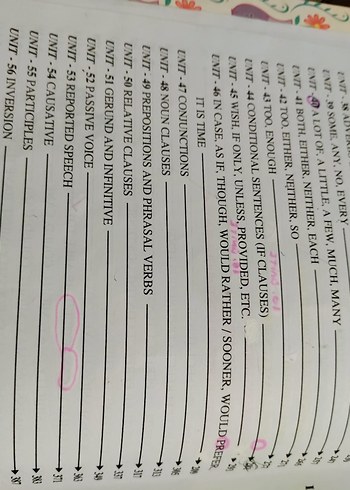 UNIT - 38 ADVERBS
UNIT - 39 SOME, ANY, NO, EVERY
UNIT - 40 A LOT OF, A LITTLE, A FEW, MUCH, MANY
UNIT - 41 BOTH, EITHER, NEITHER, EACH
UNIT - 42 TOO, EITHER, NEITHER, SO
UNIT - 43 TOO, ENOUGH
UNIT - 44 CONDITIONAL SENTENCES (IF CLAUSES)
UNIT - 45 WISH, IF ONLY, UNLESS, PROVIDED, ETC.
UNIT - 46 IN CASE, AS IF, THOUGH, WOULD RATHER / SOONER, WOULD PREFER
IT IS TIME
UNIT - 47 CONJUNCTIONS
UNIT - 48 NOUN CLAUSES
UNIT - 49 PREPOSITIONS AND PHRASAL VERBS
UNIT - 50 RELATIVE CLAUSES
UNIT - 51 GERUND AND INFINITIVE
UNIT - 52 PASSIVE VOICE
UNIT - 53 REPORTED SPEECH
UNIT - 54 CAUSATIVE
UNIT - 55 PARTICIPLES
UNIT - 56 INVERSION